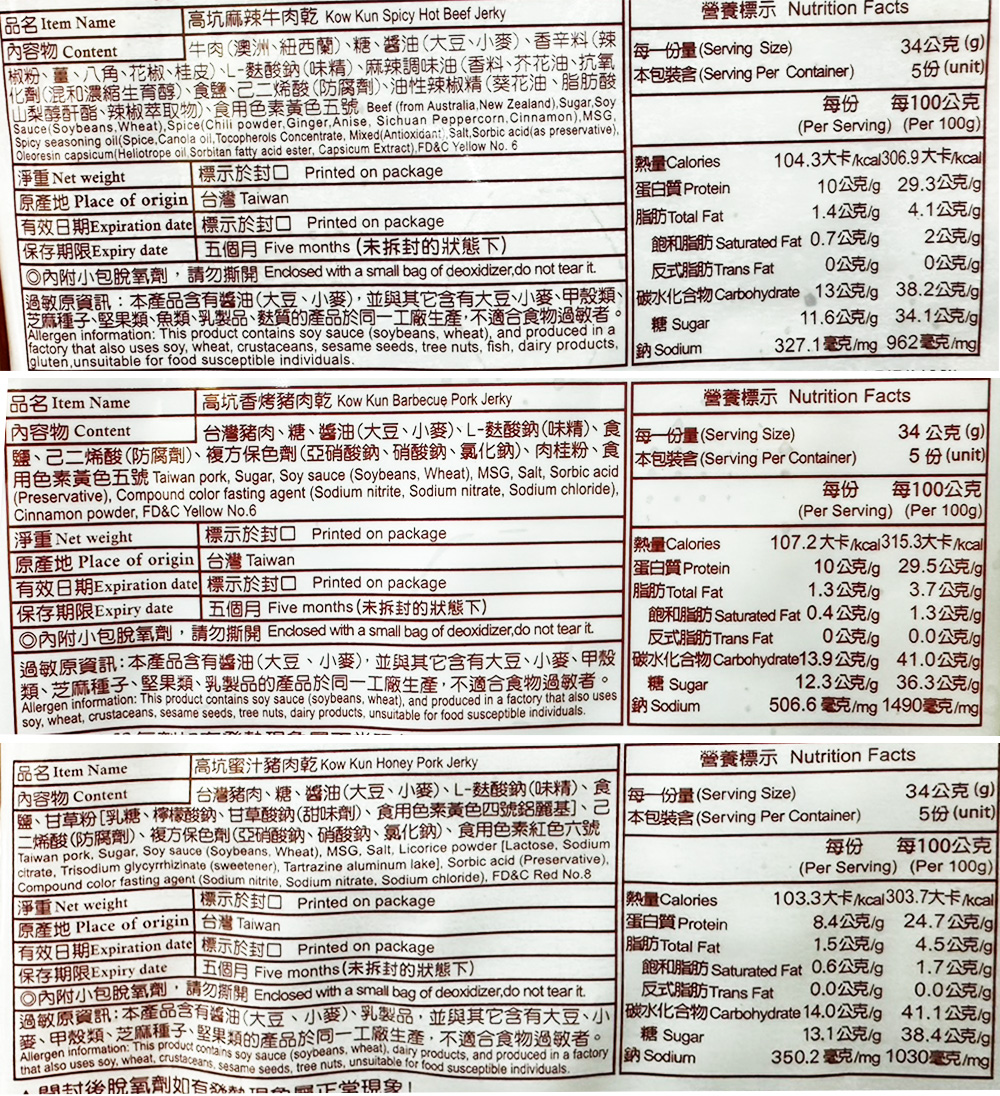 品名 Item Name 高坑麻辣牛肉乾 Kow Kun Spicy Hot Beef Jerky
內容物 Content 牛肉(澳洲、紐西蘭)、糖、醬油(大豆、小麥)、香辛料(辣
椒粉、薑、八角、花椒、桂皮)、L-麩酸鈉(味精)、麻辣調味油(香料、芥花油、抗氧
化劑(混和濃縮生育醇)、食鹽、己二烯酸(防腐劑)、油性辣椒精(葵花油、脂肪酸
山梨醇酐酯、辣椒萃取物)、食用色素黃色五號 Beef (from Australia,New Zealand),Sugar,Soy
Sauce(Soybeans,Wheat),Spice(Chili powder,Ginger,Anise, Sichuan Peppercorn,Cinnamon),MSG,
Spicy seasoning oil(Spice,Canola oil,Tocopherols Concentrate, Mixed(Antioxidant),Salt,Sorbic acid(as preservative),
Oleoresin capsicum(Heliotrope oil,Sorbitan fatty acid ester, Capsicum Extract),FD&C Yellow No. 6
淨重 Net weight 標示於封口 Printed on package
原產地 Place of origin 台灣 Taiwan
有效日期Expiration date 標示於封口 Printed on package
保存期限Expiry date 五個月 Five months (未拆封的狀態下)
◎內附小包脫氧劑，請勿撕開 Enclosed with a small bag of deoxidizer,do not tear it.
過敏原資訊：本產品含有醬油(大豆、小麥)，並與其它含有大豆、小麥、甲殼類、
芝麻種子、堅果類、魚類、乳製品、麩質的產品於同一工廠生產，不適合食物過敏者。
Allergen information: This product contains soy sauce (soybeans, wheat), and produced in a
factory that also uses soy, wheat, crustaceans, sesame seeds, tree nuts, fish, dairy products,
gluten,unsuitable for food susceptible individuals.
營養標示 Nutrition Facts
每一份量(Serving Size) 34公克(g)
本包裝含(Serving Per Container) 5份(unit)
每份 每100公克
(Per Serving) (Per 100g)
熱量Calories 104.3大卡/kcal 306.9大卡/kcal
蛋白質Protein 10公克/g 29.3公克/g
脂肪Total Fat 1.4公克/g 4.1公克/g
飽和脂肪 Saturated Fat 0.7公克/g 2公克/g
反式脂肪Trans Fat 0公克/g 0公克/g
碳水化合物Carbohydrate 13公克/g 38.2公克/g
糖 Sugar 11.6公克/g 34.1公克/g
鈉 Sodium 327.1毫克/mg 962毫克/mg
品名 Item Name 高坑香烤豬肉乾 Kow Kun Barbecue Pork Jerky
內容物 Content 台灣豬肉、糖、醬油(大豆、小麥)、L-麩酸鈉(味精)、食
鹽、己二烯酸(防腐劑)、複方保色劑(亞硝酸鈉、硝酸鈉、氯化鈉)、肉桂粉、食
用色素黃色五號 Taiwan pork, Sugar, Soy sauce (Soybeans, Wheat), MSG, Salt, Sorbic acid
(Preservative), Compound color fasting agent (Sodium nitrite, Sodium nitrate, Sodium chloride),
Cinnamon powder, FD&C Yellow No.6
淨重 Net weight 標示於封口 Printed on package
原產地 Place of origin 台灣 Taiwan
有效日期Expiration date 標示於封口 Printed on package
保存期限Expiry date 五個月 Five months (未拆封的狀態下)
◎內附小包脫氧劑，請勿撕開 Enclosed with a small bag of deoxidizer,do not tear it.
過敏原資訊：本產品含有醬油(大豆、小麥)，並與其它含有大豆、小麥、甲殼
類、芝麻種子、堅果類、乳製品的產品於同一工廠生產，不適合食物過敏者。
Allergen information: This product contains soy sauce (soybeans, wheat), and produced in a factory that also uses
soy, wheat, crustaceans, sesame seeds, tree nuts, dairy products, unsuitable for food susceptible individuals.
營養標示 Nutrition Facts
每一份量(Serving Size) 34 公克(g)
本包裝含(Serving Per Container) 5 份(unit)
每份 每100公克
(Per Serving) (Per 100g)
熱量Calories 107.2大卡/kcal 315.3大卡/kcal
蛋白質Protein 10公克/g 29.5公克/g
脂肪Total Fat 1.3公克/g 3.7公克/g
飽和脂肪 Saturated Fat 0.4公克/g 1.3公克/g
反式脂肪Trans Fat 0公克/g 0.0公克/g
碳水化合物Carbohydrate 13.9公克/g 41.0公克/g
糖 Sugar 12.3公克/g 36.3公克/g
鈉 Sodium 506.6 毫克/mg 1490毫克/mg
品名 Item Name 高坑蜜汁豬肉乾 Kow Kun Honey Pork Jerky
內容物 Content 台灣豬肉、糖、醬油(大豆、小麥)、L-麩酸鈉(味精)、食
鹽、甘草粉[乳糖、檸檬酸鈉、甘草酸鈉(甜味劑)、食用色素黃色四號鋁麗基]、己
二烯酸(防腐劑)、複方保色劑(亞硝酸鈉、硝酸鈉、氯化鈉)、食用色素紅色六號
Taiwan pork, Sugar, Soy sauce (Soybeans, Wheat), MSG, Salt, Licorice powder [Lactose, Sodium
citrate, Trisodium glycyrrhizinate (sweetener), Tartrazine aluminum lake], Sorbic acid (Preservative),
Compound color fasting agent (Sodium nitrite, Sodium nitrate, Sodium chloride), FD&C Red No.8
淨重 Net weight 標示於封口 Printed on package
原產地 Place of origin 台灣 Taiwan
有效日期Expiration date 標示於封口 Printed on package
保存期限Expiry date 五個月 Five months (未拆封的狀態下)
◎內附小包脫氧劑，請勿撕開 Enclosed with a small bag of deoxidizer,do not tear it.
過敏原資訊：本產品含有醬油(大豆、小麥)、乳製品，並與其它含有大豆、小
麥、甲殼類、芝麻種子、堅果類的產品於同一工廠生產，不適合食物過敏者。
Allergen information: This product contains soy sauce (soybeans, wheat), dairy products, and produced in a factory
that also uses soy, wheat, crustaceans, sesame seeds, tree nuts, unsuitable for food susceptible individuals.
營養標示 Nutrition Facts
每一份量(Serving Size) 34公克(g)
本包裝含(Serving Per Container) 5份(unit)
每份 每100公克
(Per Serving) (Per 100g)
熱量Calories 103.3大卡/kcal 303.7大卡/kcal
蛋白質Protein 8.4公克/g 24.7公克/g
脂肪Total Fat 1.5公克/g 4.5公克/g
飽和脂肪 Saturated Fat 0.6公克/g 1.7公克/g
反式脂肪Trans Fat 0.0公克/g 0.0公克/g
碳水化合物Carbohydrate 14.0公克/g 41.1公克/g
糖 Sugar 13.1公克/g 38.4公克/g
鈉 Sodium 350.2毫克/mg 1030毫克/mg
▲開封後脫氧劑如有發熱現象屬正常現象!